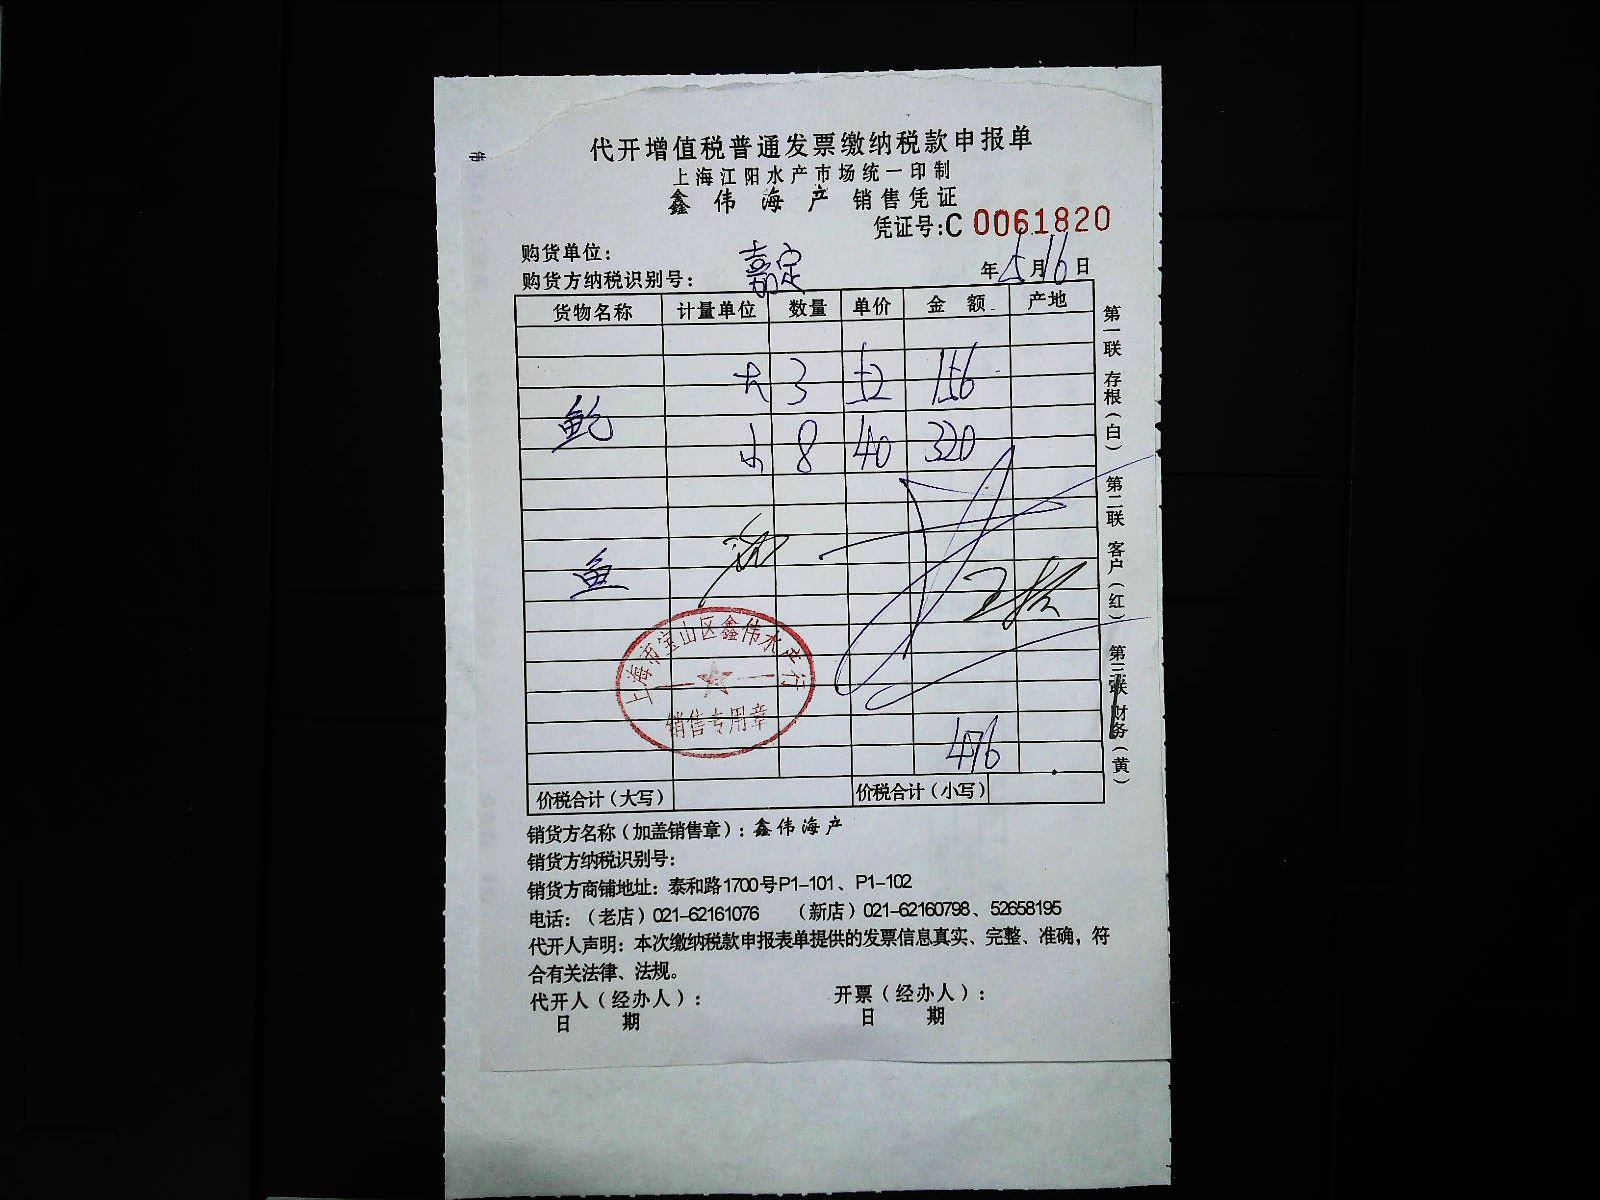 代开增值税普通发票缴纳税款申报单
上海江阳水产市场统一印制
鑫伟海产 销售凭证
凭证号:C 0061820
购货单位:
嘉定
购货方纳税识别号:
年5月16日
货物名称 计量单位 数量 单价 金额 产地
大 3 52 156
鲍
小 8 40 320
鱼
上海市宝山区鑫伟水产行
销售专用章
476
价税合计(大写) 价税合计(小写)
第一联 存根(白) 第二联 客户(红) 第三联 财务(黄)
销货方名称(加盖销售章):鑫伟海产
销货方纳税识别号:
销货方商铺地址:泰和路1700号P1-101、P1-102
电话:(老店)021-62161076 (新店)021-62160798、52658195
代开人声明:本次缴纳税款申报表单提供的发票信息真实、完整、准确,符
合有关法律、法规。
代开人(经办人): 开票(经办人):
日 期 日 期